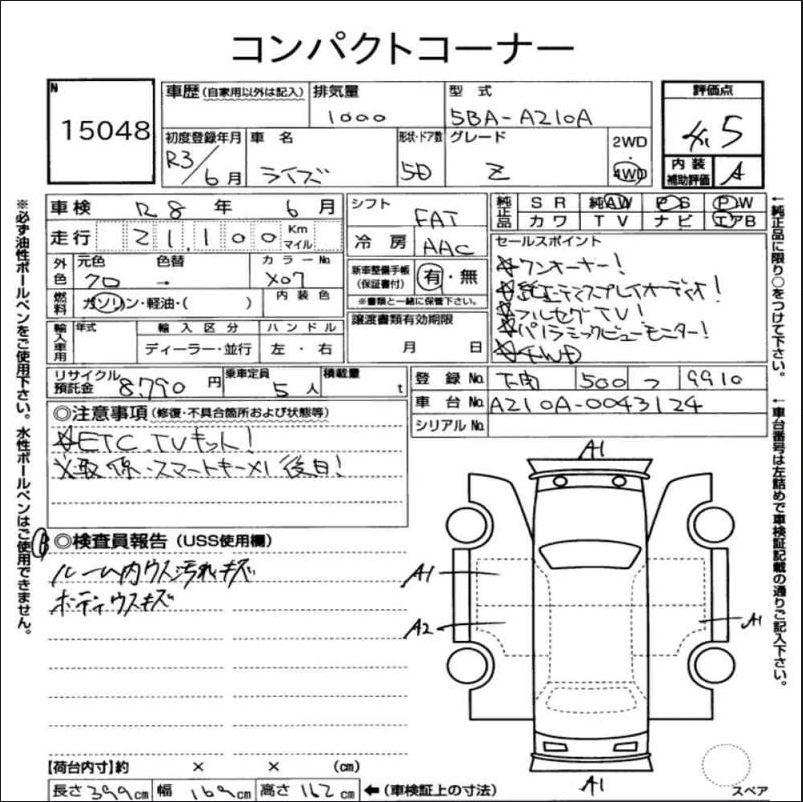 コンパクトコーナー
N
15048
車歴(自家用以外は記入)
排気量
1000
型式
5BA-A210A
評価点
4.5
初度登録年月
R3/6月
車名
ライズ
形状・ドア数
5D
グレード
Z
2WD
・
4WD
内装
補助評価
A
車検 R8年 6月
走行 21,100 Km
マイル
シフト
FAT
冷房
AAC
純正品
SR 純AW PS PW
カワ TV ナビ エアB
外色
元色 色替 カラーNo
クロ → X07
燃料
ガソリン・軽油・( )
内装色
新車整備手帳
(保証書付)
有・無
※書類と一緒に保管下さい。
セールスポイント
☆ワンオーナー!
☆純正ディスプレイオーディオ!
☆フルセグTV!
☆パノラミックビューモニター!
☆4WD
輸入車用
年式 輸入区分 ハンドル
ディーラー・並行 左・右
譲渡書類有効期限
月 日
リサイクル
預託金
8,790円
乗車定員
5人
積載量
t
登録No. 500 つ 9910
車台No. A210A-0043124
シリアルNo.
◎注意事項(修復・不具合箇所および状態等)
☆ETC.TVキット!
※取・保・スマートキー×1後日!
◎検査員報告(USS使用欄)
ルーム内ウス汚れキズ
ボディウスキズ
A1
A1
A2
A1
A1
【荷台内寸】約 × × (cm)
長さ399cm 幅169cm 高さ162cm ←(車検証上の寸法)
スペア
※必ず油性ボールペンをご使用下さい。水性ボールペンはご使用できません。
←純正品に限り○をつけて下さい。
←車台番号は左詰めで車検証記載の通りご記入下さい。